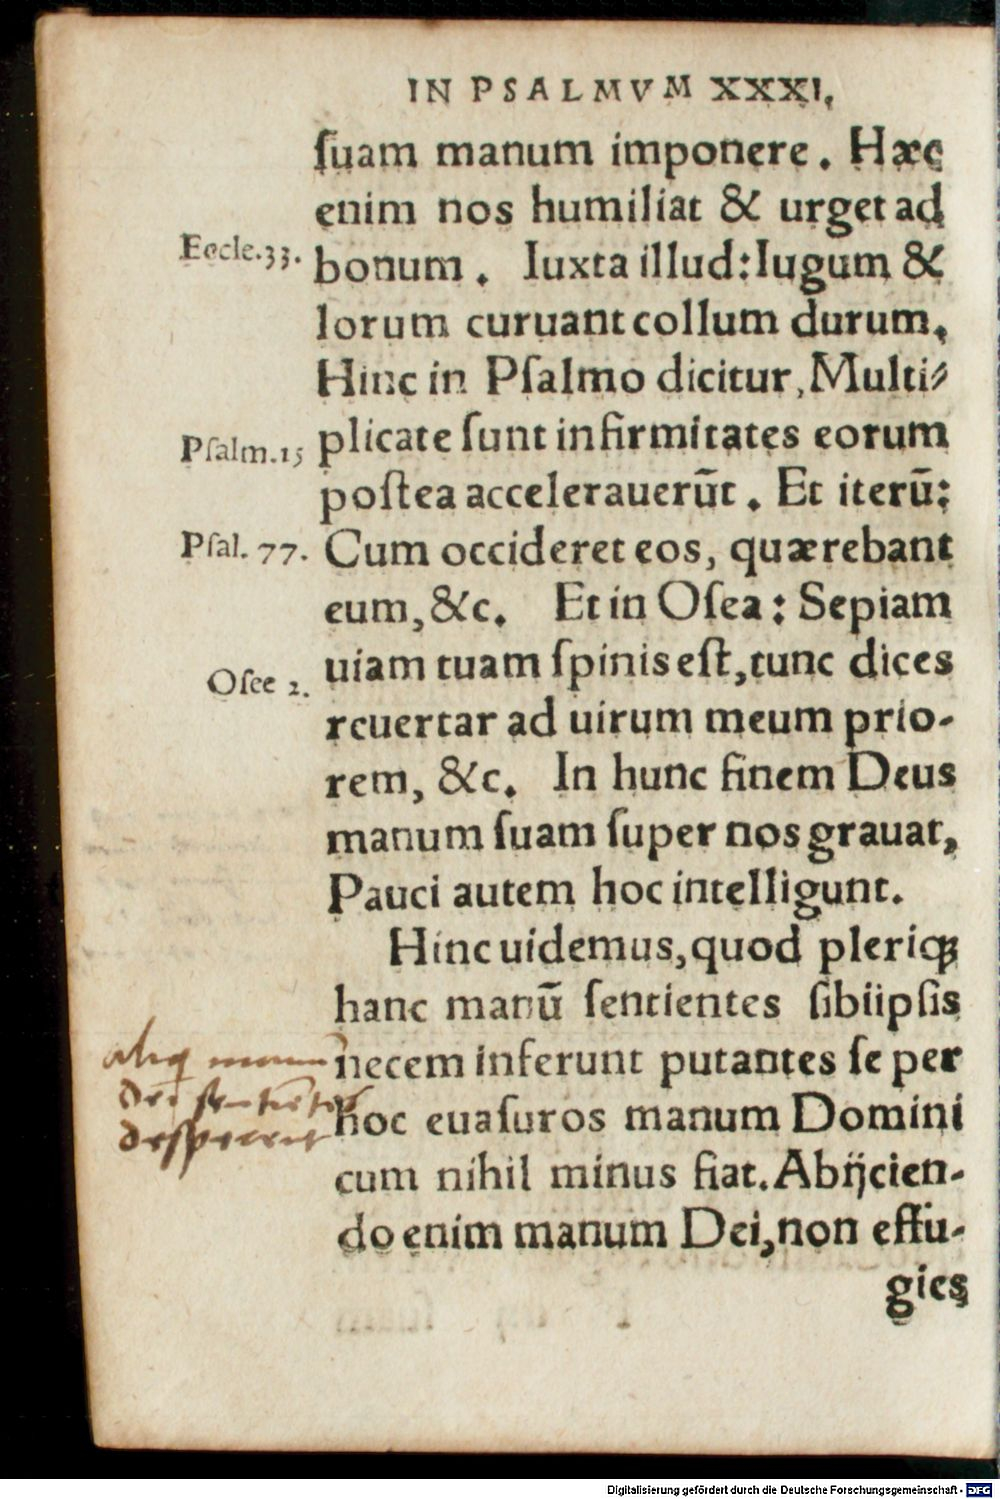 IN PSALMVM XXXI.
ſuam manum imponere. Hæc
enim nos humiliat & urget ad
Eccle.33.
bonum. Iuxta illud: Iugum &
lorum curuant collum durum.
Hinc in Pſalmo dicitur, Multi⸗
Pſalm.15
plicate ſunt infirmitates eorum
poſtea accelerauerūt. Et iterū:
Pſal. 77.
Cum occideret eos, quærebant
eum, &c. Et in Oſea: Sepiam
Oſee 2.
uiam tuam ſpinis eſt, tunc dices
reuertar ad uirum meum prio-
rem, &c. In hunc finem Deus
manum ſuam ſuper nos grauat,
Pauci autem hoc intelligunt.
Hinc uidemus, quod pleriqꝫ
hanc manū ſentientes ſibiipſis
necem inferunt putantes ſe per
hoc euaſuros manum Domini
cum nihil minus fiat. Abijcien-
do enim manum Dei, non effu-
gies
Digitalisierung gefördert durch die Deutsche Forschungsgemeinschaft - DFG